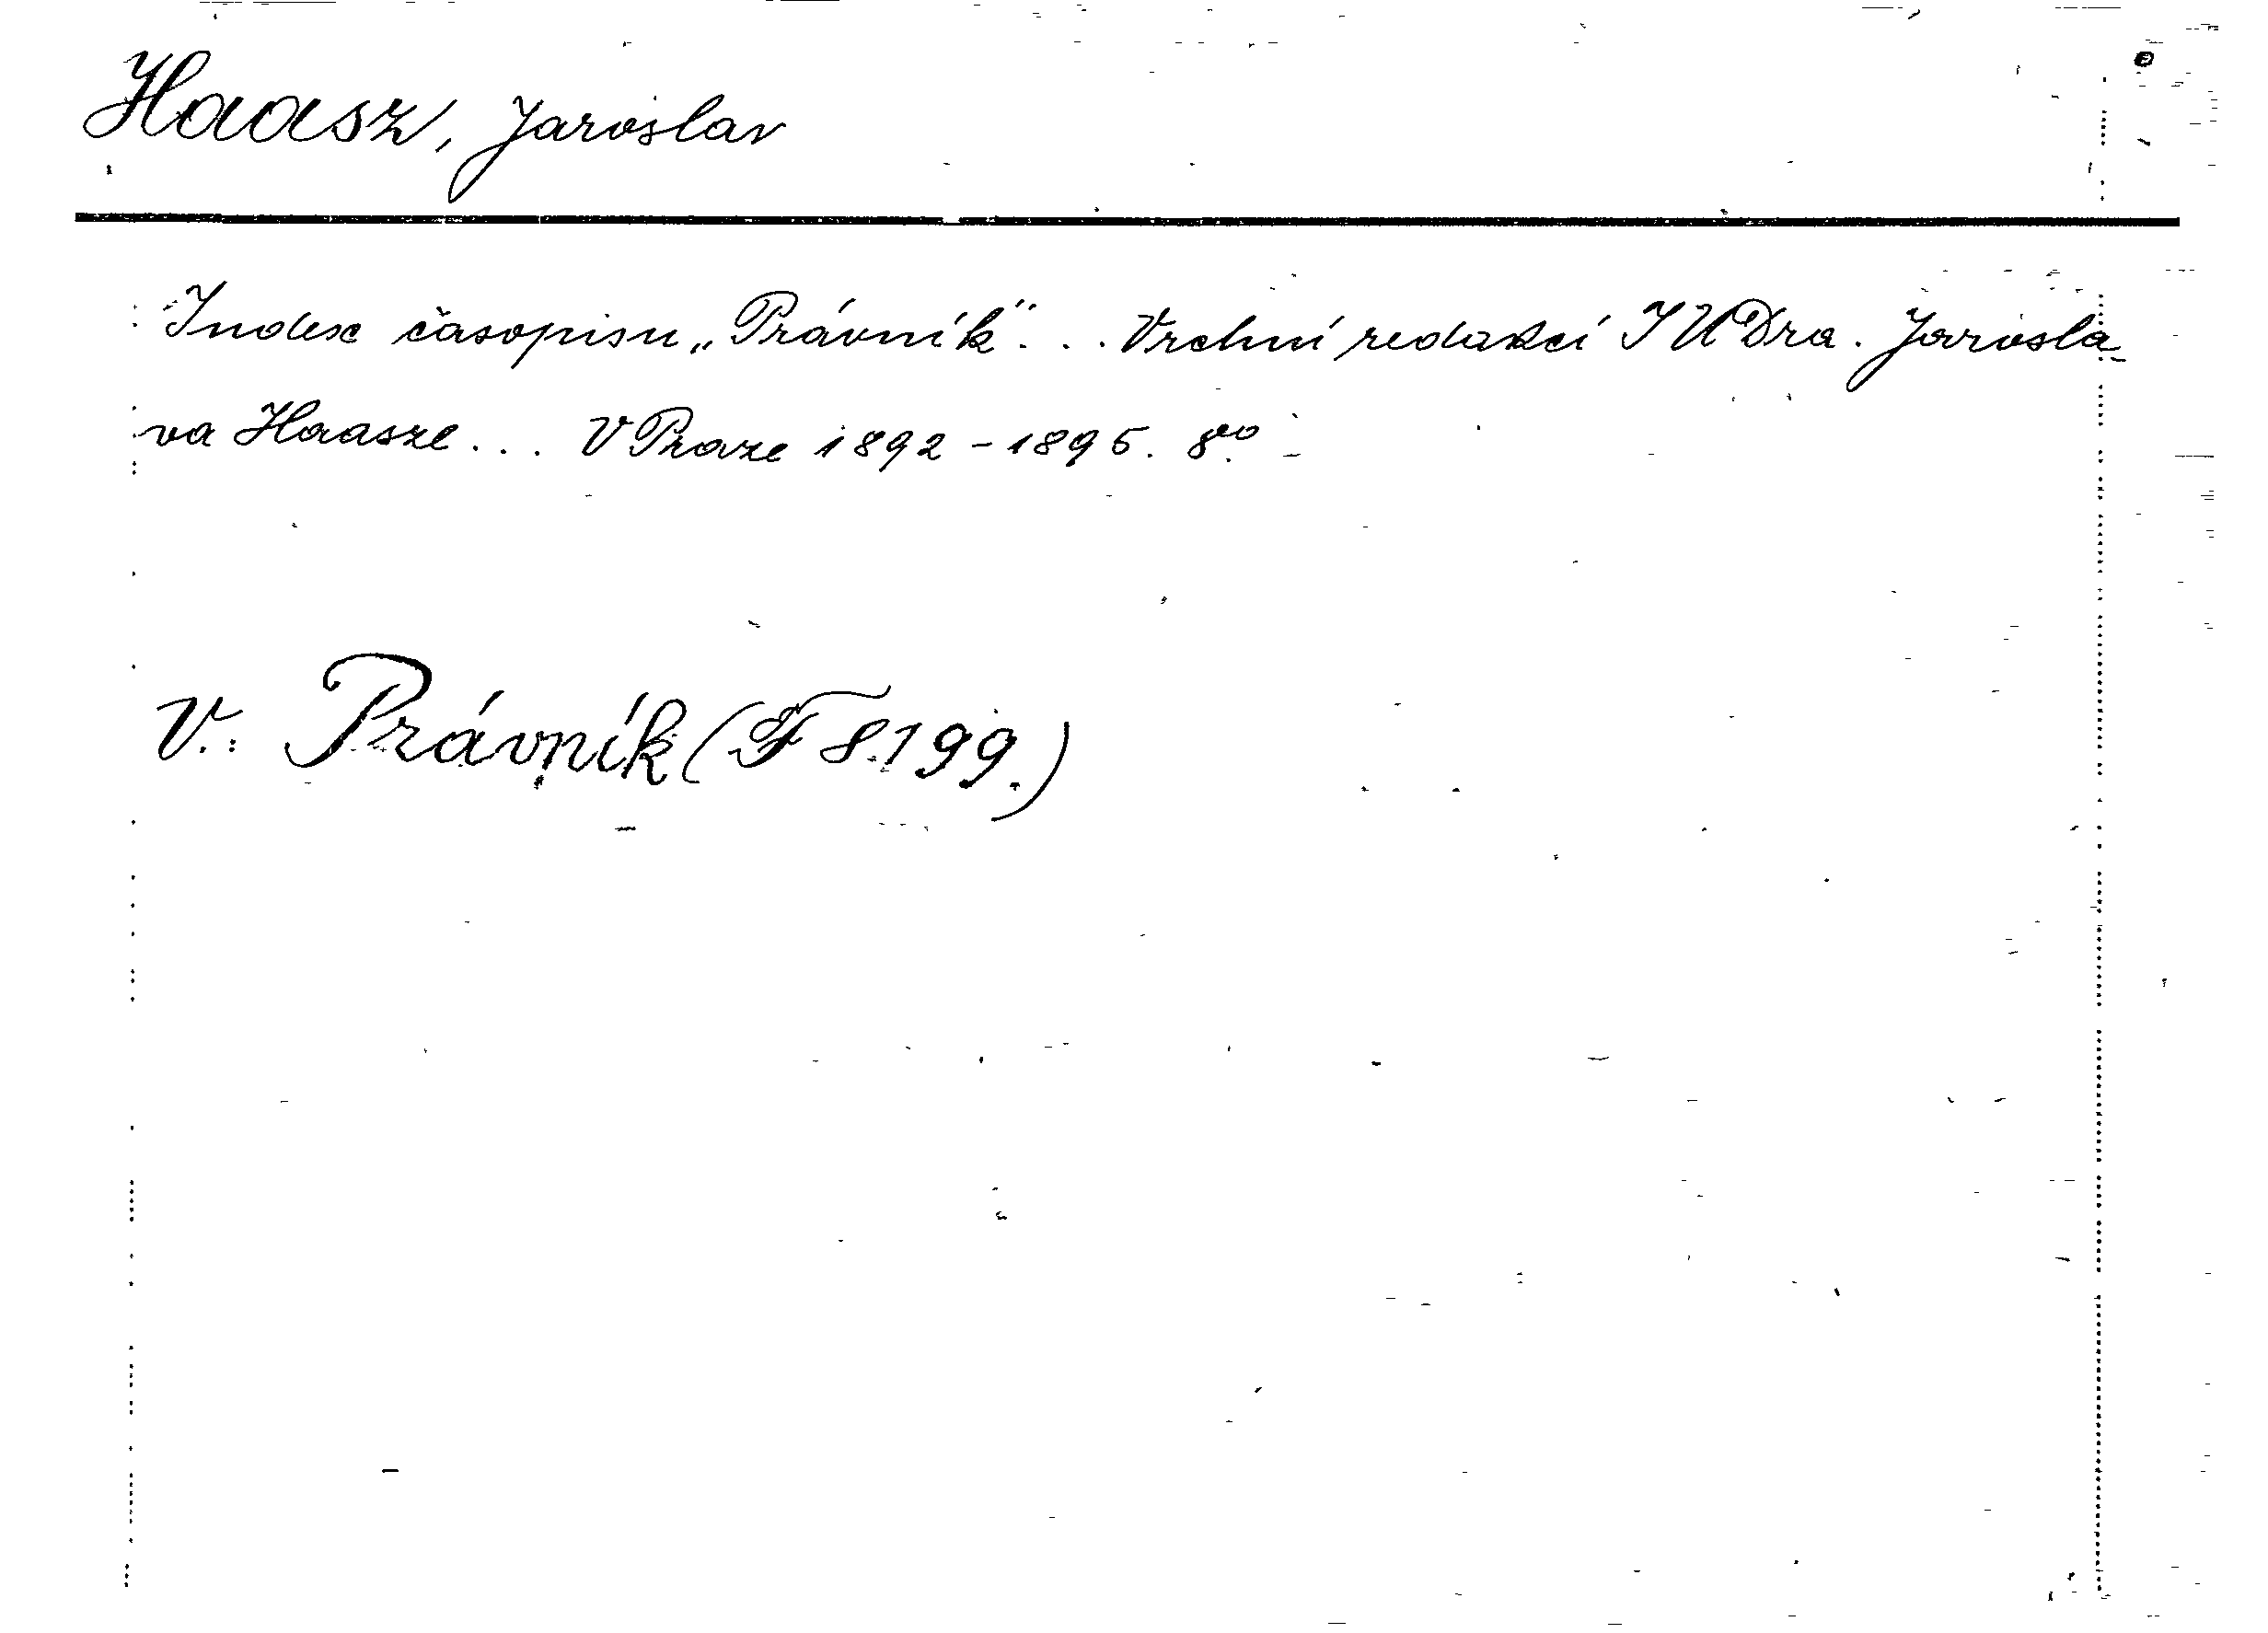 Haasz, Jaroslav
Index časopisu „Právník“... Vrchní redakcí JUDra. Jarosla-
va Haasze... V Praze 1892-1895. 8vo
V.: Právník (F 8.199.)